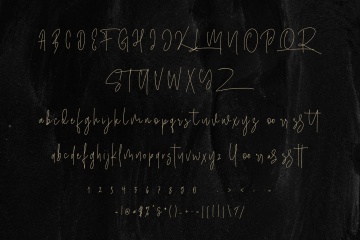 A B C D E F G H I J K L M N O P Q R
S T U V W X Y Z
a b c d e f g h i j k l m n o p q r s t u v w x y z oo rr ss tt
a b c d e f g h i j k l m n o p q r s t u v w x y z ll oo rr ss tt
1 2 3 4 5 6 7 8 9 0